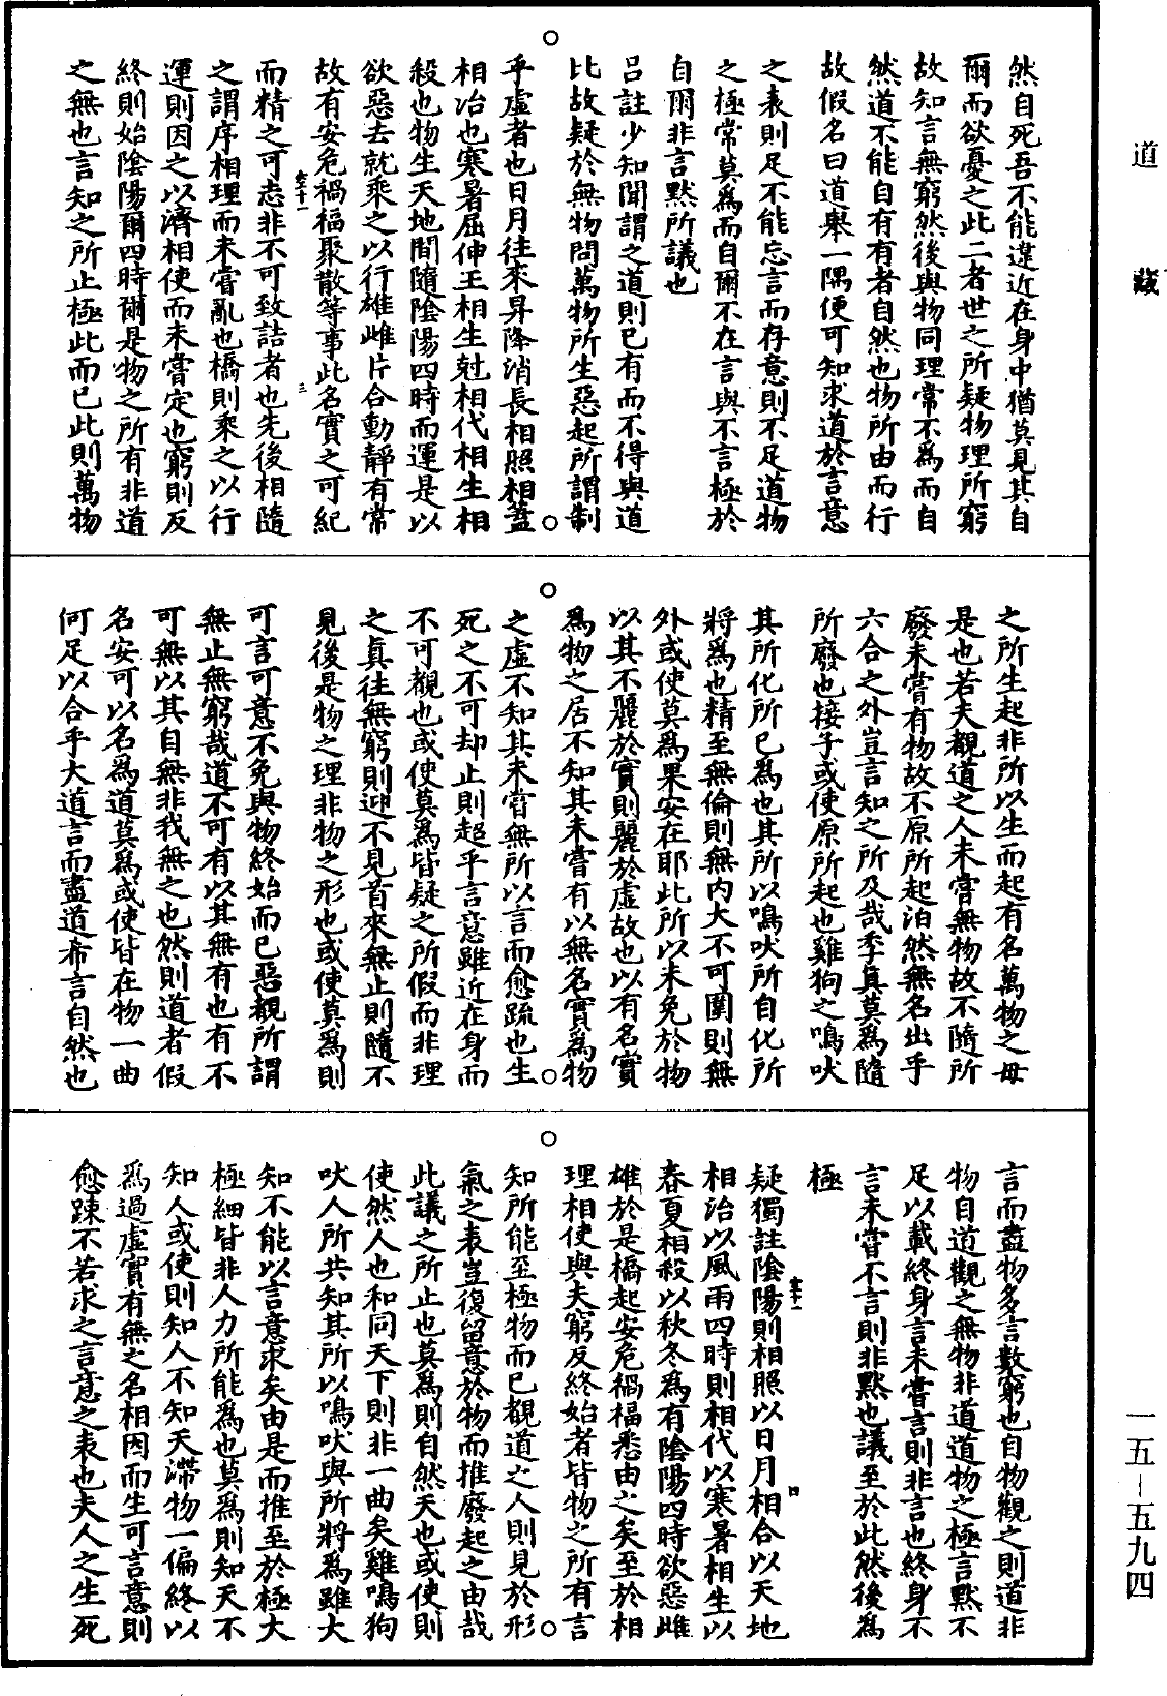 道藏
然自死吾不能違近在身中猶莫見其自
爾而欲憂之此二者世之所疑物理所窮
故知言無窮然後與物同理常不為而自
然道不能自有有者自然也物所由而行
故假名曰道舉一隅便可知求道於言意
之表則足不能忘言而存意則不足道物
之極常莫為而自爾不在言與不言極於
自爾非言默所議也
呂註少知聞謂之道則已有而不得與道
比故疑於無物問萬物所生惡起所謂制
乎虛者也日月往來昇降消長相照相蓋
相治也寒暑屈伸王相生尅相代相生相
殺也物生天地間隨陰陽四時而運是以
欲惡去就乘之以行雄雌片合動靜有常
故有安危禍福聚散等事此名實之可紀
而精之可志非不可致詰者也先後相隨
之謂序相理而未嘗亂也橋則乘之以行
運則因之以濟相使而未嘗定也窮則反
終則始陰陽爾四時爾是物之所有非道
之無也言知之所止極此而已此則萬物
之所生起非所以生而起有名萬物之母
是也若夫覩道之人未嘗無物故不隨所
廢未嘗有物故不原所起泊然無名出乎
六合之外豈言知之所及哉季真莫為隨
所廢也接子或使原所起也雞狗之鳴吠
其所化所已為也其所以鳴吠所自化所
將為也精至無倫則無內大不可圍則無
外或使莫為果安在耶此所以未免於物
以其不麗於實則麗於虛故也以有名實
為物之居不知其未嘗有以無名實為物
之虛不知其未嘗無所以言而愈疏也生
死之不可却止則超乎言意雖近在身而
不可覩也或使莫為皆疑之所假而非理
之真往無窮則迎不見首來無止則隨不
見後是物之理非物之形也或使莫為則
可言可意不免與物終始而已惡覩所謂
無止無窮哉道不可有以其無有也有不
可無以其自無非我無之也然則道者假
名安可以名為道莫為或使皆在物一曲
何足以合乎大道言而盡道希言自然也
言而盡物多言數窮也自物觀之則道非
物自道觀之無物非道道物之極言默不
足以載終身言未嘗言則非言也終身不
言未嘗不言則非默也議至於此然後為
極
疑獨註陰陽則相照以日月相合以天地
相治以風雨四時則相代以寒暑相生以
春夏相殺以秋冬為有陰陽四時欲惡雌
雄於是橋起安危禍福悉由之矣至於相
理相使與夫窮反終始者皆物之所有言
知所能至極物而已覩道之人則見於形
氣之表豈復留意於物而推廢起之由哉
此議之所止也莫為則自然天也或使則
使然人也和同天下則非一曲矣雞鳴狗
吠人所共知其所以鳴吠與所將為雖大
知不能以言意求矣由是而推至於極大
極細皆非人力所能為也莫為則知天不
知人或使則知人不知天滯物一偏終以
為過虛實有無之名相因而生可言意則
愈踈不若求之言意之表也夫人之生死
一五—五九四